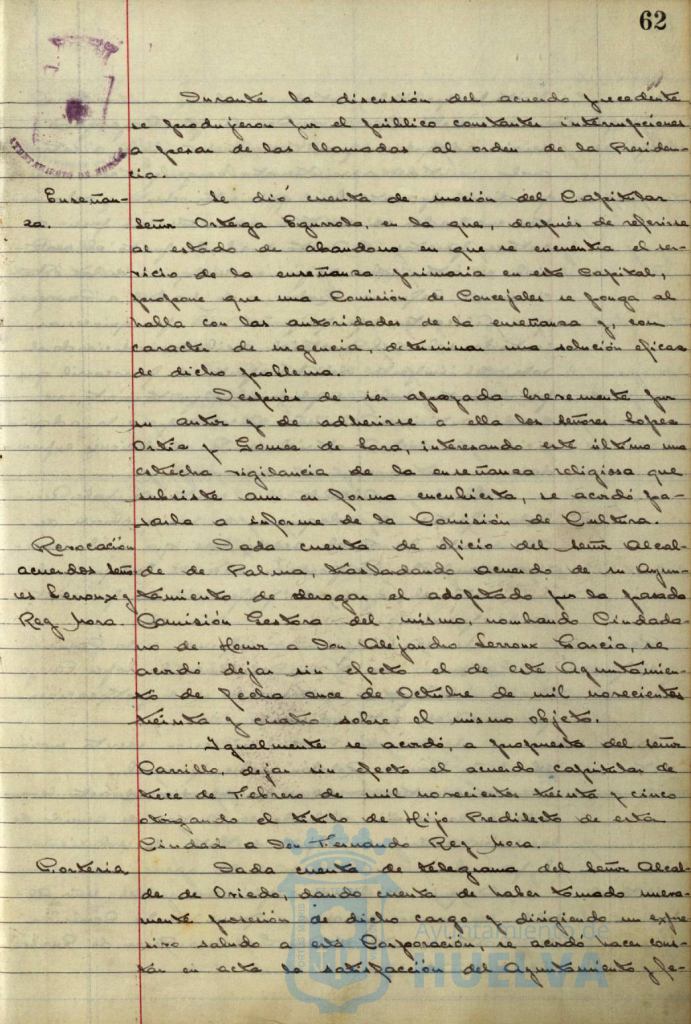 62
Durante la discusión del acuerdo precedente
se produjeron por el público constantes interrupciones
a pesar de las llamadas al orden de la Presiden-
cia.
Enseñan-
za.
Se dió cuenta de moción del Capitular
señor Ortega Egurrola, en la que, después de referirse
al estado de abandono en que se encuentra el ser-
vicio de la enseñanza primaria en esta Capital,
propone que una Comisión de Concejales se ponga al
habla con las autoridades de la enseñanza y, con
caracter de urgencia, determinar una solución eficaz
de dicho problema.
Después de ser apoyada brevemente por
su autor y de adherirse a ella los señores Lopez
Ortiz y Gomez de Lara, interesando este último una
estrecha vigilancia de la enseñanza religiosa que
subsiste aun en forma encubierta, se acordó pa-
sarla a informe de la Comisión de Cultura.
Revocación
acuerdos seño-
res Lerroux y
Rey Mora.
Dada cuenta de oficio del señor Alcal-
de de Palma, trasladando acuerdo de su Ayun-
tamiento de derogar el adoptado por la pasada
Comisión Gestora del mismo, nombrando Ciudada-
no de Honor a Don Alejandro Lerroux Garcia, se
acordó dejar sin efecto el de este Ayuntamien-
to de fecha once de Octubre de mil novecientos
treinta y cuatro sobre el mismo objeto.
Igualmente se acordó, a propuesta del señor
Carrillo, dejar sin efecto el acuerdo capitular de
trece de Febrero de mil novecientos treinta y cinco
otorgando el titulo de Hijo Predilecto de esta
Ciudad a Don Fernando Rey Mora.
Cortesia
Dada cuenta de telegrama del señor Alcal-
de de Oviedo, dando cuenta de haber tomado nueva-
mente posesión de dicho cargo y dirigiendo un expre-
sivo saludo a esta Corporación, se acordó hacer cons-
tar en acta la satisfacción del Ayuntamiento y fe-
Ayuntamiento de
HUELVA